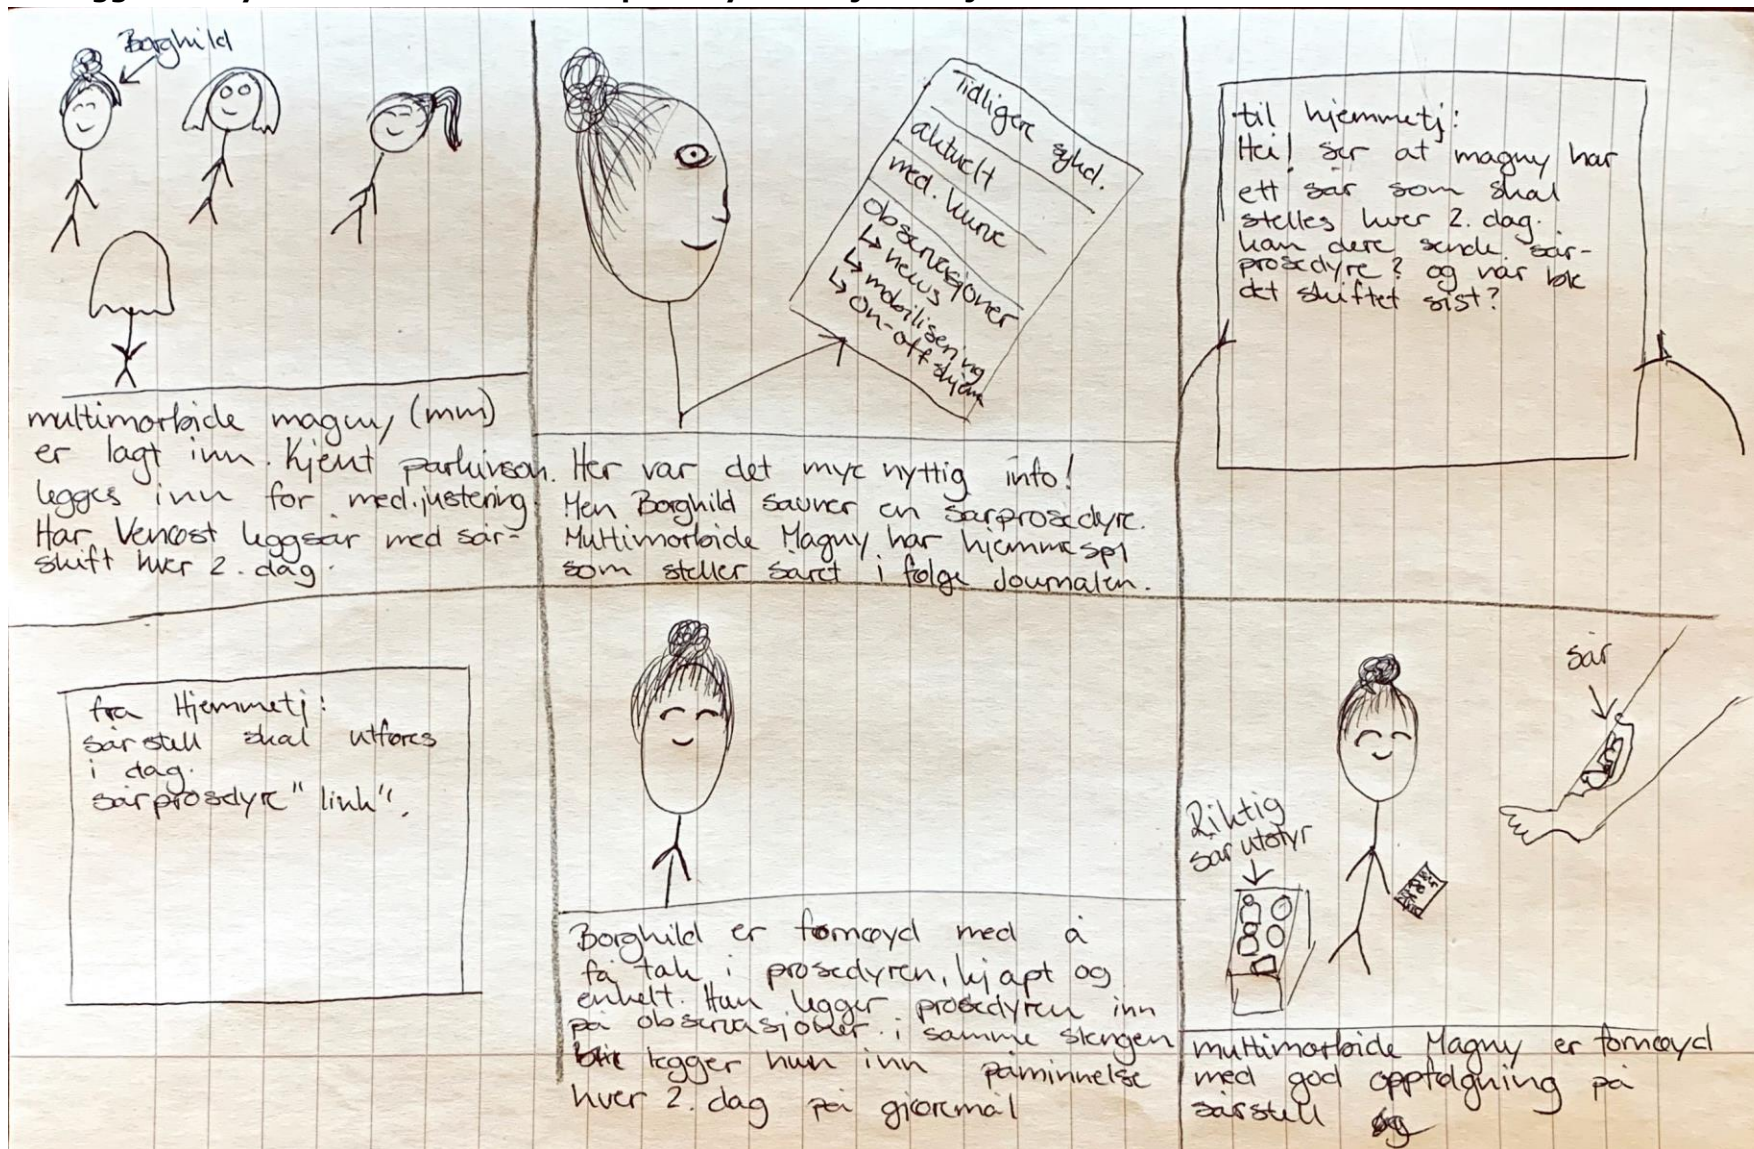 Borghild
multimorbide magny (mm)
er lagt inn. Kjent parkinson.
legges inn for med.justering.
Har Venøst leggsår med sår-
skift hver 2. dag.
Tidligere sykd.
aktuelt
med. kurve
observasjoner
↳ news
↳ mobilisering
↳ on-off skjema
Her var det mye nyttig info!
Men Borghild savner en sårprosedyre.
Multimorbide Magny har hjemmespl
som steller såret i følge Journalen.
til hjemmetj:
Hei! ser at magny har
ett sår som skal
stelles hver 2. dag.
kan dere sende sår-
prosedyre? og når ble
det skiftet sist?
fra Hjemmetj:
sårstell skal utføres
i dag.
sårprosedyre "link".
Borghild er fornøyd med å
få tak i prosedyren, kjapt og
enkelt. Hun legger prosedyren inn
på observasjoner. i samme slengen
legger hun inn påminnelse
hver 2. dag på gjøremål
sår
Riktig
sårutstyr
multimorbide Magny er fornøyd
med god oppfølgning på
sårstell